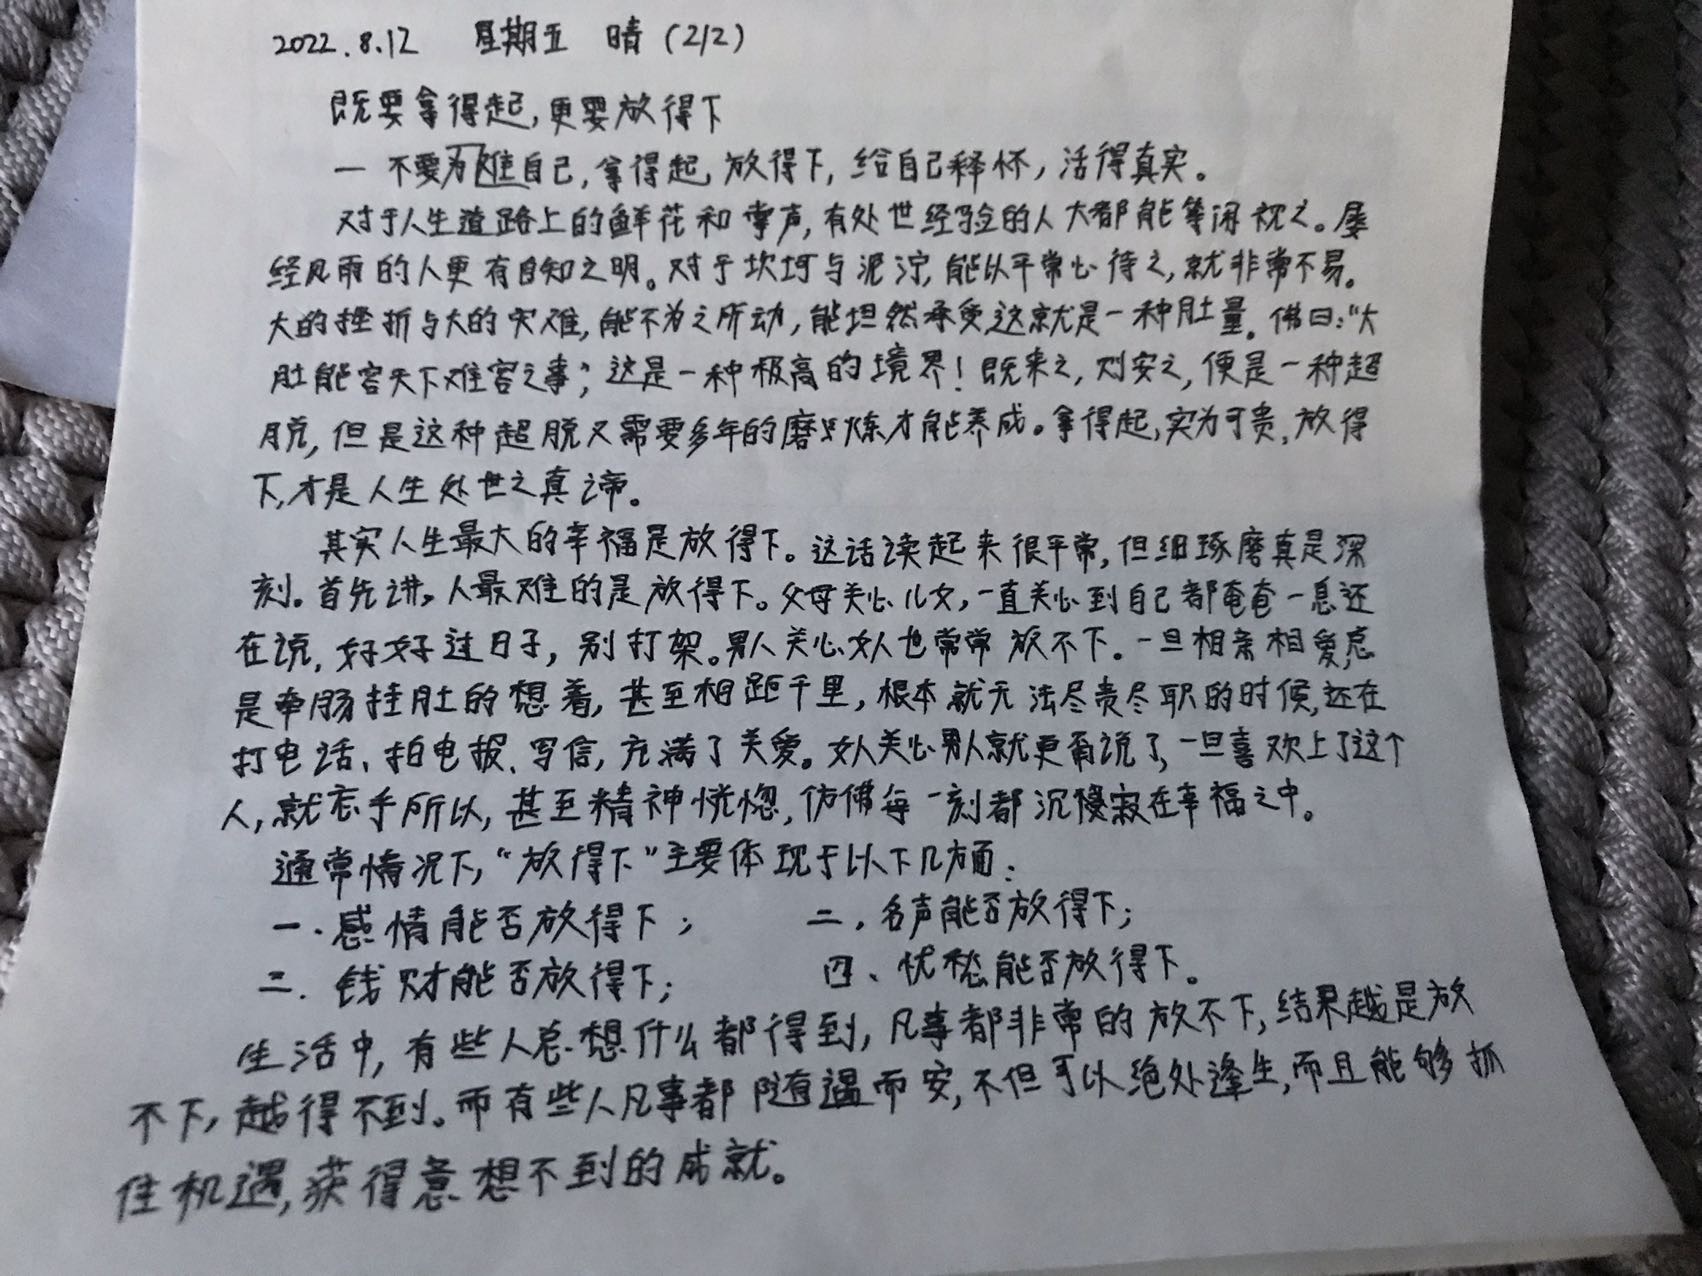 2022.8.12 星期五 晴（212）
既要拿得起,更要放得下
一 不要为难自己,拿得起,放得下,给自己释怀,活得真实。
对于人生道路上的鲜花和掌声,有处世经验的人大都能等闲视之。屡
经风雨的人更有自知之明。对于坎坷与泥泞,能以平常心待之,就非常不易。
大的挫折与大的灾难,能不为之所动,能坦然承受,这就是一种肚量。佛曰:“大
肚能容天下难容之事”,这是一种极高的境界!既来之,则安之,便是一种超
脱,但是这种超脱又需要多年的磨炼才能养成。拿得起,实为可贵,放得
下,才是人生处世之真谛。
其实人生最大的幸福是放得下。这话读起来很平常,但细琢磨真是深
刻。首先讲,人最难的是放得下。父母关心儿女,一直关心到自己都奄奄一息还
在说,好好过日子,别打架。男人关心女人也常常放不下。一旦相亲相爱,总
是牵肠挂肚的想着,甚至相距千里,根本就无法尽责尽职的时候,还在
打电话、拍电报、写信,充满了关爱。女人关心男人就更甭说了,一旦喜欢上了这个
人,就忘乎所以,甚至精神恍惚,仿佛每一刻都沉寂在幸福之中。
通常情况下,“放得下”主要体现于以下几方面:
一.感情能否放得下; 二,名声能否放得下;
三.钱财能否放得下; 四、忧愁能否放得下。
生活中,有些人总想什么都得到,凡事都非常的放不下,结果越是放
不下,越得不到。而有些人凡事都随遇而安,不但可以绝处逢生,而且能够抓
住机遇,获得意想不到的成就。